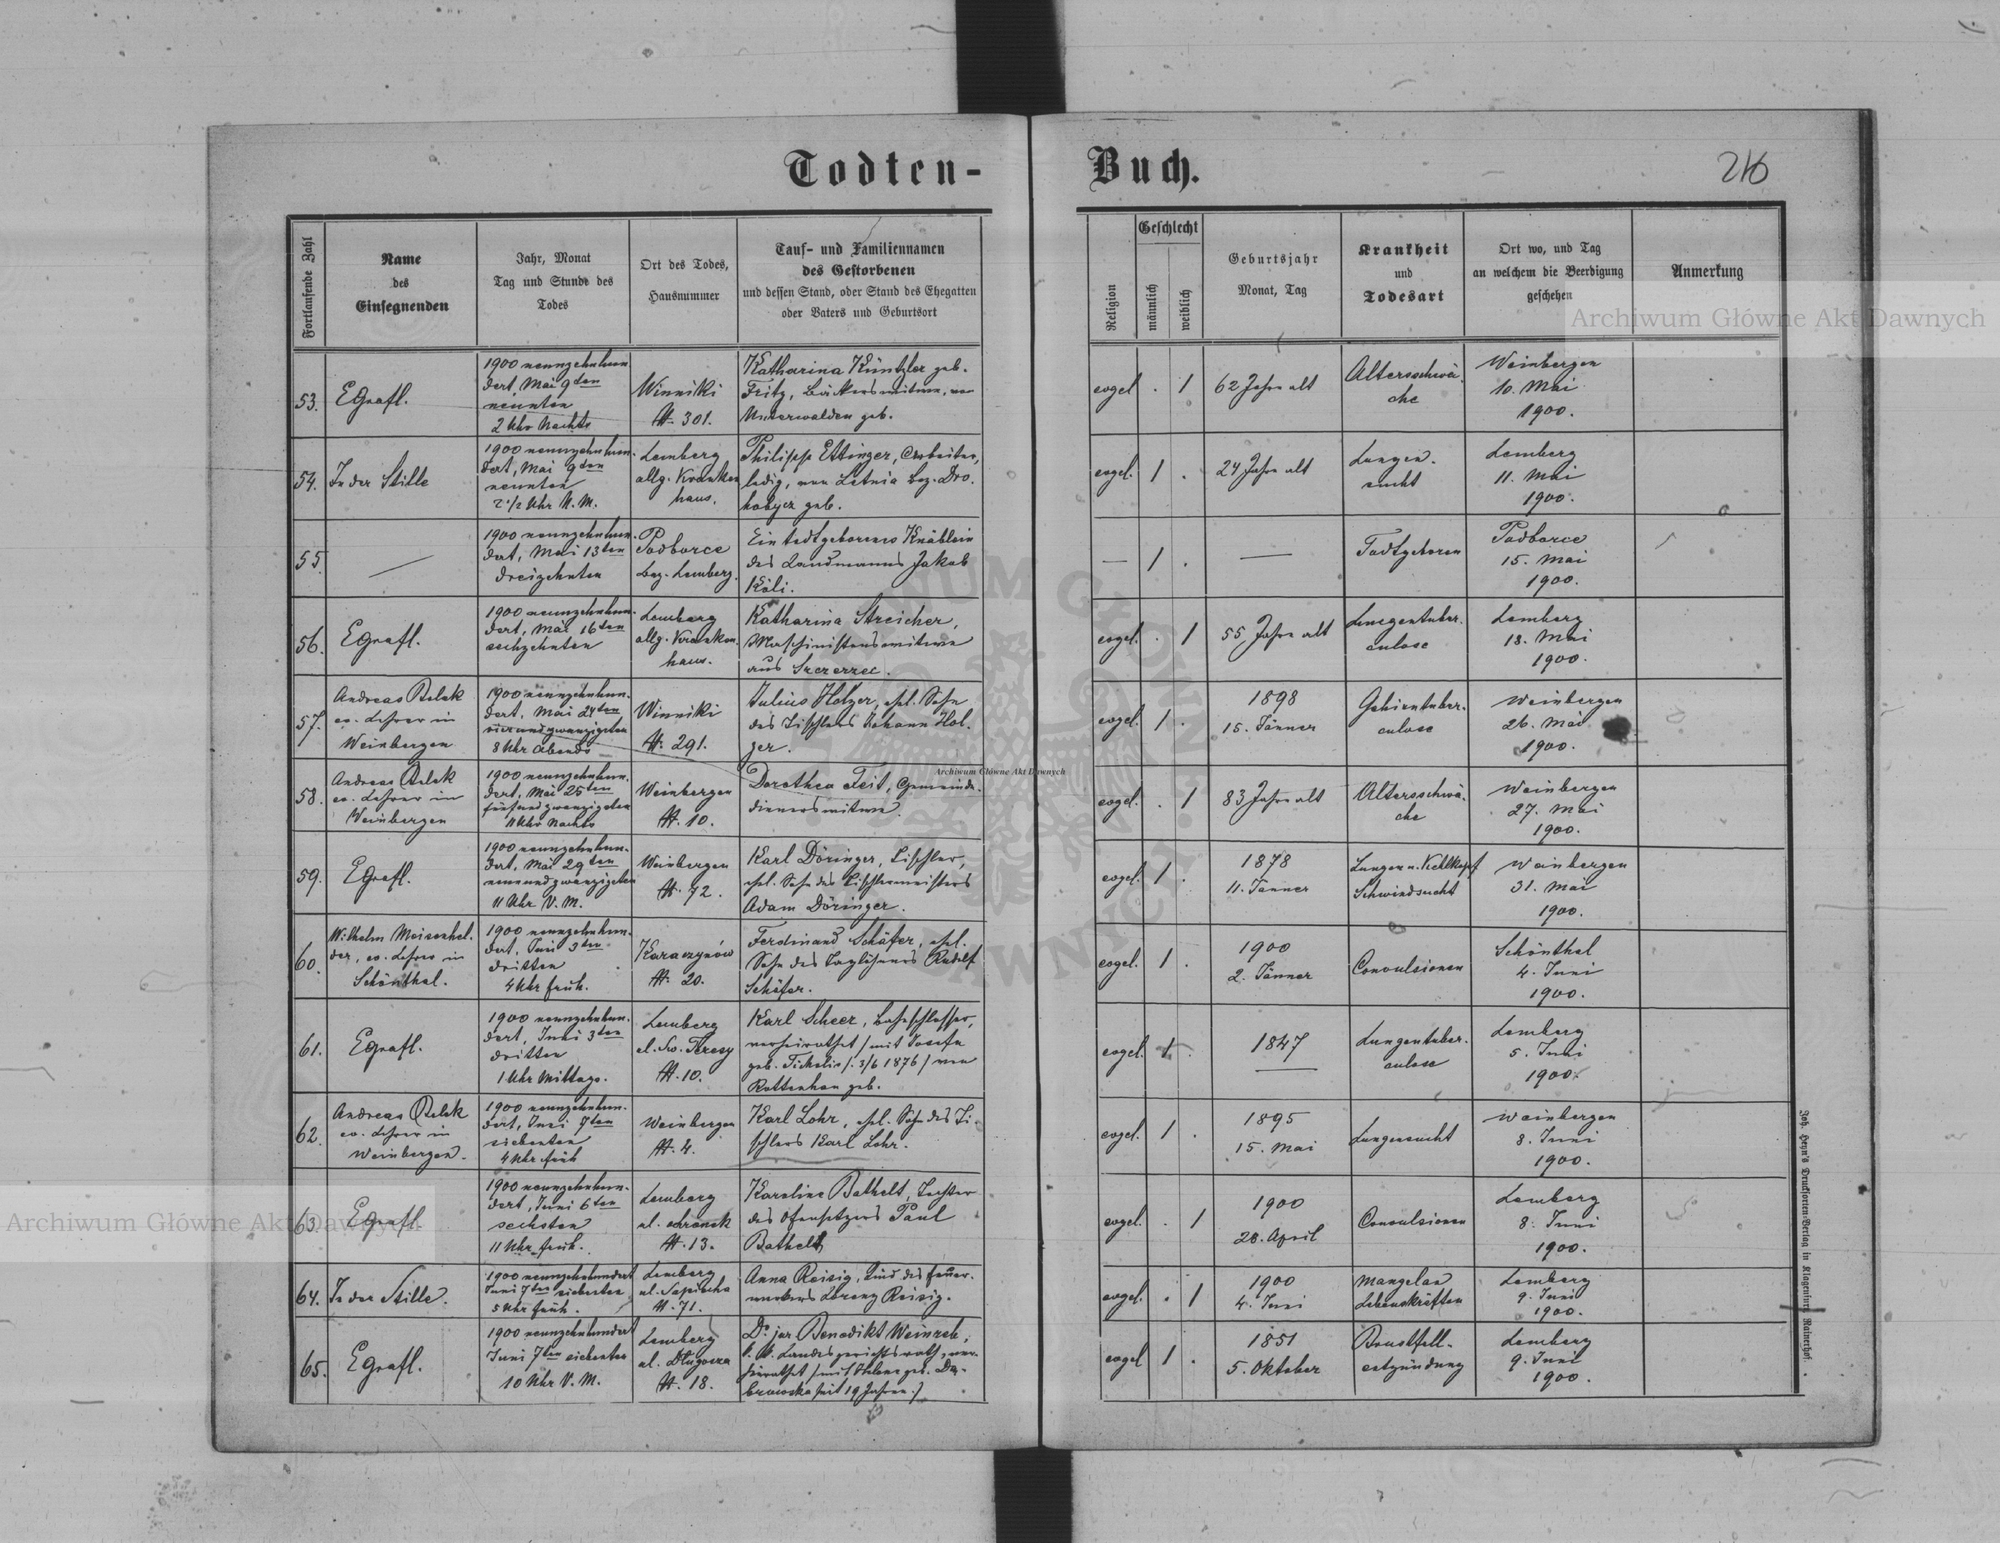 Todten-Buch.
216
Fortlaufende Zahl
Name
des
Einsegnenden
Jahr, Monat
Tag und Stunde des
Todes
Ort des Todes,
Hausnummer
Tauf- und Familiennamen
des Gestorbenen
und dessen Stand, oder Stand des Ehegatten
oder Vaters und Geburtsort
Religion
Geschlecht
männlich
weiblich
Geburtsjahr
Monat, Tag
Krankheit
und
Todesart
Ort wo, und Tag
an welchem die Beerdigung
geschehen
Anmerkung
53.
EGrafl.
1900 neunzehnhun
dert, Mai 9ten
neunten
2 Uhr Nachts
Winniki
N. 301.
Katharina Küntzler geb.
Fritz, Bäckerswitwe, von
Unterwalden geb.
evgel . 1
62 Jahre alt
Altersschwä-
che
Weinbergen
10. Mai
1900.
54.
In der Stille
1900 neunzehnhun-
dert, Mai 9ten
neunten
2 1/2 Uhr N. M.
Lemberg
allg. Kranken
haus.
Philipp Ettinger, Arbeiter,
ledig, von Letnia Bez. Dro-
hobycz geb.
evgel. 1 .
24 Jahre alt
Lungen-
sucht
Lemberg
11. Mai
1900.
55.
—
1900 neunzehnhun-
dert, Mai 13ten
dreizehnten
Podborce
Bez. Lemberg.
Ein todtgeborenes Knäblein
des Landmanns Jakob
Köli.
— 1 .
—
Todtgeboren
Podborce
15. Mai
1900.
56.
EGrafl.
1900 neunzehnhun-
dert, Mai 16ten
sechzehnten
Lemberg
allg. Kranken-
haus.
Katharina Streicher,
Maschinistenswitwe
aus Szczerzec.
evgel. . 1
55 Jahre alt
Lungentuber-
culose
Lemberg
18. Mai
1900.
57.
Andreas Relek
ev. Lehrer in
Weinbergen
1900 neunzehnhun-
dert, Mai 24ten
vierundzwanzigsten
8 Uhr Abends
Winniki
N. 291.
Julius Holzer, ehl. Sohn
des Tischlers Johann Hol-
zer.
evgel. 1 .
1898
15. Jänner
Gehirntuber-
culose
Weinbergen
26. Mai
1900.
58.
Andreas Relek
ev. Lehrer in
Weinbergen
1900 neunzehnhun-
dert, Mai 25ten
fünfundzwanzigsten
11 Uhr Nachts
Weinbergen
N. 10.
Dorothea Teit, Gemeinde-
dienerswitwe.
evgel. . 1
83 Jahre alt
Altersschwä-
che
Weinbergen
27. Mai
1900.
59.
EGrafl.
1900 neunzehnhun-
dert, Mai 29ten
neunundzwanzigsten
11 Uhr V. M.
Weinbergen
N. 72.
Karl Döringer, Tischler,
ehl. Sohn des Tischlermeisters
Adam Döringer.
evgel. 1 .
1878
11. Jänner
Lungen u. Kehlkopf
Schwindsucht
Weinbergen
31. Mai
1900.
60.
Wilhelm Meisenhel-
der, ev. Lehrer in
Schönthal.
1900 neunzehnhun-
dert, Juni 3ten
dritten
4 Uhr früh.
Karaczynów
N. 20.
Ferdinand Schäfer, ehl.
Sohn des Taglöhners Rudolf
Schäfer.
evgel. 1 .
1900
2. Jänner
Convulsionen
Schönthal
4. Juni
1900.
61.
EGrafl.
1900 neunzehnhun-
dert, Juni 3ten
dritten
1 Uhr Mittags.
Lemberg
ul. Św. Teresy
N. 10.
Karl Scheer, Bahnschlosser,
verheirathet / mit Josefa
geb. /. 3/6 1876 / von
Rottenhan geb.
evgel. 1 .
1847
Lungentuber-
culose
Lemberg
5. Juni
1900.
62.
Andreas Relek
ev. Lehrer in
Weinbergen.
1900 neunzehnhun-
dert, Juni 7ten
siebenten
4 Uhr früh
Weinbergen
N. 4.
Karl Lohr, ehl. Sohn des Ti-
schlers Karl Lohr.
evgel. 1 .
1895
15. Mai
Lungensucht
Weinbergen
8. Juni
1900.
63.
EGrafl.
1900 neunzehnhun-
dert, Juni 6ten
sechsten
11 Uhr früh.
Lemberg
ul.
N. 13.
Karoline Bathelt, Tochter
des Ofensetzers Paul
Bathelt
evgel. . 1
1900
28. April
Convulsionen
Lemberg
8. Juni
1900.
64.
In der Stille.
1900 neunzehnhundert
Juni 7ten siebenten
5 Uhr früh.
Lemberg
ul. Sapieha
N. 71.
Anna Reisig, Kind des Feuer-
werkers Lorenz Reisig.
evgel. . 1
1900
4. Juni
Mangel an
Lebenskräften
Lemberg
9. Juni
1900.
65.
EGrafl.
1900 neunzehnhundert
Juni 7ten siebenten
10 Uhr V. M.
Lemberg
ul. Długosza
N. 18.
Dr jur Benedikt Weinreb,
k. k. Landesgerichtsrath, ver-
heirathet / mit Helene geb. Da-
browska seit 19 Jahren /
evgel 1 .
1851
5. Oktober
Brustfell-
entzündung
Lemberg
9. Juni
1900.
Joh. Heyn's Drucksorten-Verlag in Klagenfurt, Rainerhof.
Archiwum Główne Akt Dawnych
Archiwum Główne Akt Dawnych
Archiwum Główne Akt Dawnych